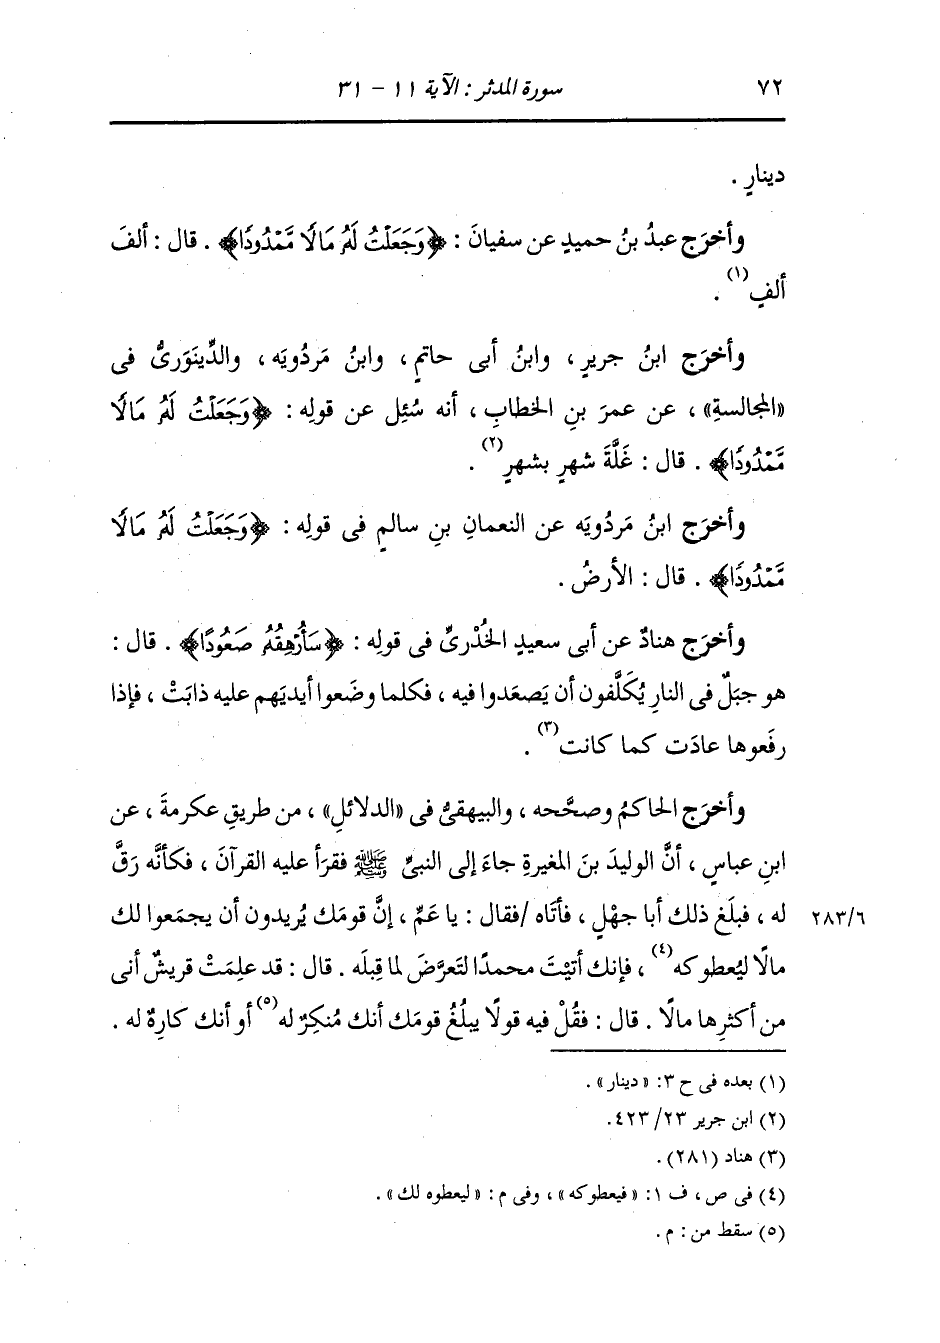 ٧٢ سورة المدثر : الآية ١١ - ٣١
دينارٍ .
وأخرَج عبدُ بنُ حميدٍ عن سفيانَ : ﴿وَجَعَلْتُ لَهُ مَالًا مَّمْدُودًا﴾ . قال : ألفَ
ألفٍ(١) .
وأخرَج ابنُ جريرٍ ، وابنُ أبى حاتمٍ ، وابنُ مَردُويَه ، والدِّينَوَرىُّ فى
«المجالسةِ» ، عن عمرَ بنِ الخطابِ ، أنه سُئِل عن قولِه : ﴿وَجَعَلْتُ لَهُ مَالًا
مَّمْدُودًا﴾ . قال : غَلَّةَ شهرٍ بشهرٍ(٢) .
وأخرَج ابنُ مَردُويَه عن النعمانِ بنِ سالمٍ فى قولِه : ﴿وَجَعَلْتُ لَهُ مَالًا
مَّمْدُودًا﴾ . قال : الأرضُ .
وأخرَج هنادٌ عن أبى سعيدٍ الخُدْرىِّ فى قولِه : ﴿سَأُرْهِقُهُ صَعُودًا﴾ . قال :
هو جبَلٌ فى النارِ يُكَلَّفون أن يَصعَدوا فيه ، فكلما وضَعوا أيديَهم عليه ذابَتْ ، فإذا
رفَعوها عادَت كما كانت(٣) .
وأخرَج الحاكمُ وصحَّحه ، والبيهقىُّ فى «الدلائلِ» ، من طريقِ عكرمةَ ، عن
ابنِ عباسٍ ، أنَّ الوليدَ بنَ المغيرةِ جاءَ إلى النبىِّ ﷺ فقرَأ عليه القرآنَ ، فكأنَّه رَقَّ
له ، فبلَغ ذلك أبا جهْلٍ ، فأتَاه /فقال : يا عَمِّ ، إنَّ قومَك يُريدون أن يجمَعوا لك ٢٨٣/٦
مالًا ليُعطوكه(٤) ، فإنك أتيْتَ محمدًا لتَعرَّضَ لما قِبلَه . قال : قد علِمَتْ قريشٌ أنى
من أكثرِها مالًا . قال : فقُلْ فيه قولًا يبلُغُ قومَك أنك مُنكِرٌ له(٥) أو أنك كارِهٌ له .
(١) بعده فى ح ٣: «دينار» .
(٢) ابن جرير ٢٣/ ٤٢٣.
(٣) هناد (٢٨١) .
(٤) فى ص ، ف ١: «فيعطوكه» ، وفى م : «ليعطوه لك» .
(٥) سقط من : م .